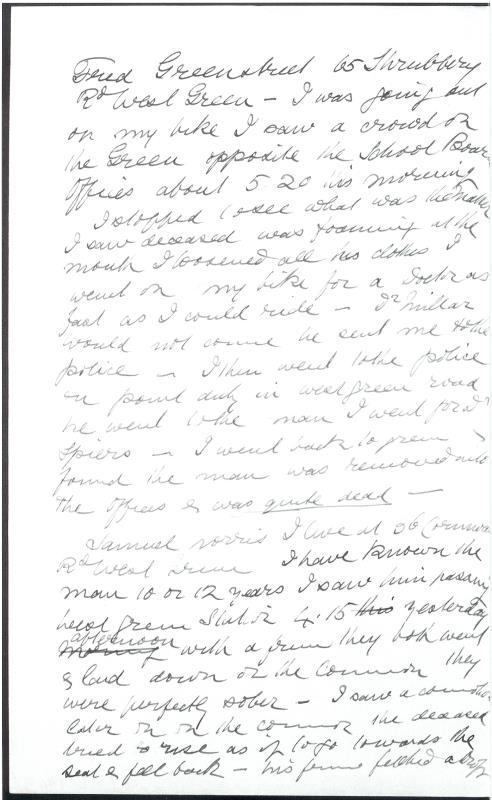 Fred Greenstreet 65 Shrubbery
Rd West Green – I was going out
on my bike I saw a crowd on
the Green opposite the School Board
Offices about 5.20 this morning
I stopped to see what was the matter
I saw deceased was foaming at the
mouth I loosened all his clothes I
went on my bike for a Doctor as
fast as I could ride – Dr Millar
would not come he sent me to the
police – I then went to the police
on point duty in west green road
he went to the man I went for Dr
Spiers – I went back to green &
found the man was removed into
the offices & was quite dead –
Samuel Norris I live at 36
Rd West Green I have known the
man 10 or 12 years I saw him passing
west green Station 4.15 this yesterday
afternoon
morning with a they both went
& laid down on the Common they
were perfectly sober – I saw a commotion
later on on the common the deceased
tried to rise as if to go towards the
seat & fell back – his fetched a